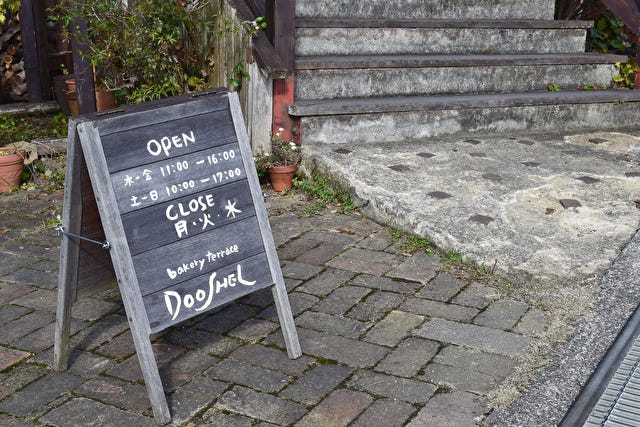 OPEN
木・金 11:00 — 16:00
土 — 日 10:00 — 17:00
CLOSE
月・火・水
bakery terrace
DOOSHEL